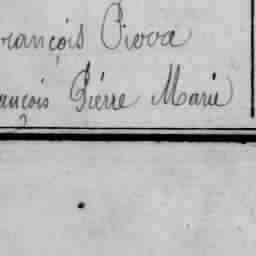 rançois Piova
ançois Piérre Marie